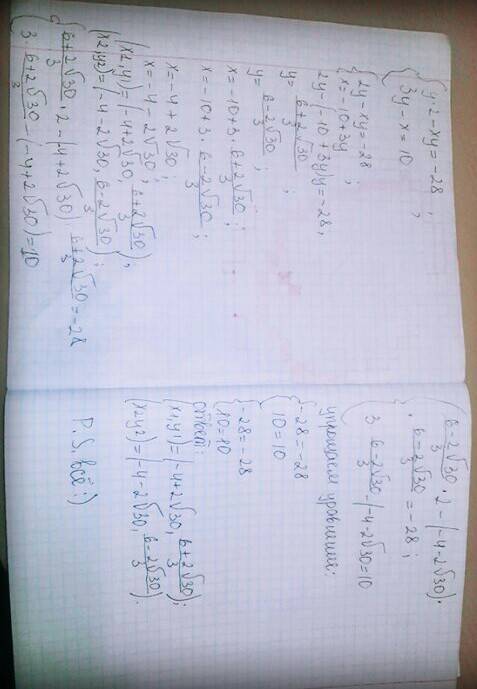 { y·2-xy=-28 ;
3y-x=10 ,
{ 2y-xy=-28 ;
x=-10+3y
2y-(-10+3y)y=-28,
y= 6+2√30/3 ;
y= 6-2√30/3 ;
x=-10+3· 6+2√30/3 ;
x=-10+3· 6-2√30/3 ;
x=-4+2√30 ;
x=-4-2√30 ;
(x2,y)=(-4+2√30, 6+2√30/3);
(x2,y2)=(-4-2√30, 6-2√30/3);
{ 6+2√30/3 ·2-(-4+2√30)· 6+2√30/3 =-28
3· 6+2√30/3 -(-4+2√30)=10
{ 6-2√30/3 ·2-(-4-2√30)·
· 6-2√30/3 =-28;
3 6-2√30/3 -(-4-2√30=10
упрощаем уровниния:
{ -28=-28
10=10
{ -28=-28
10=10
ответ:
(x1,y1)=(-4+2√30, 6+2√30/3);
(x2y2)=(-4-2√30, 6-2√30/3).
P.S. всё:)